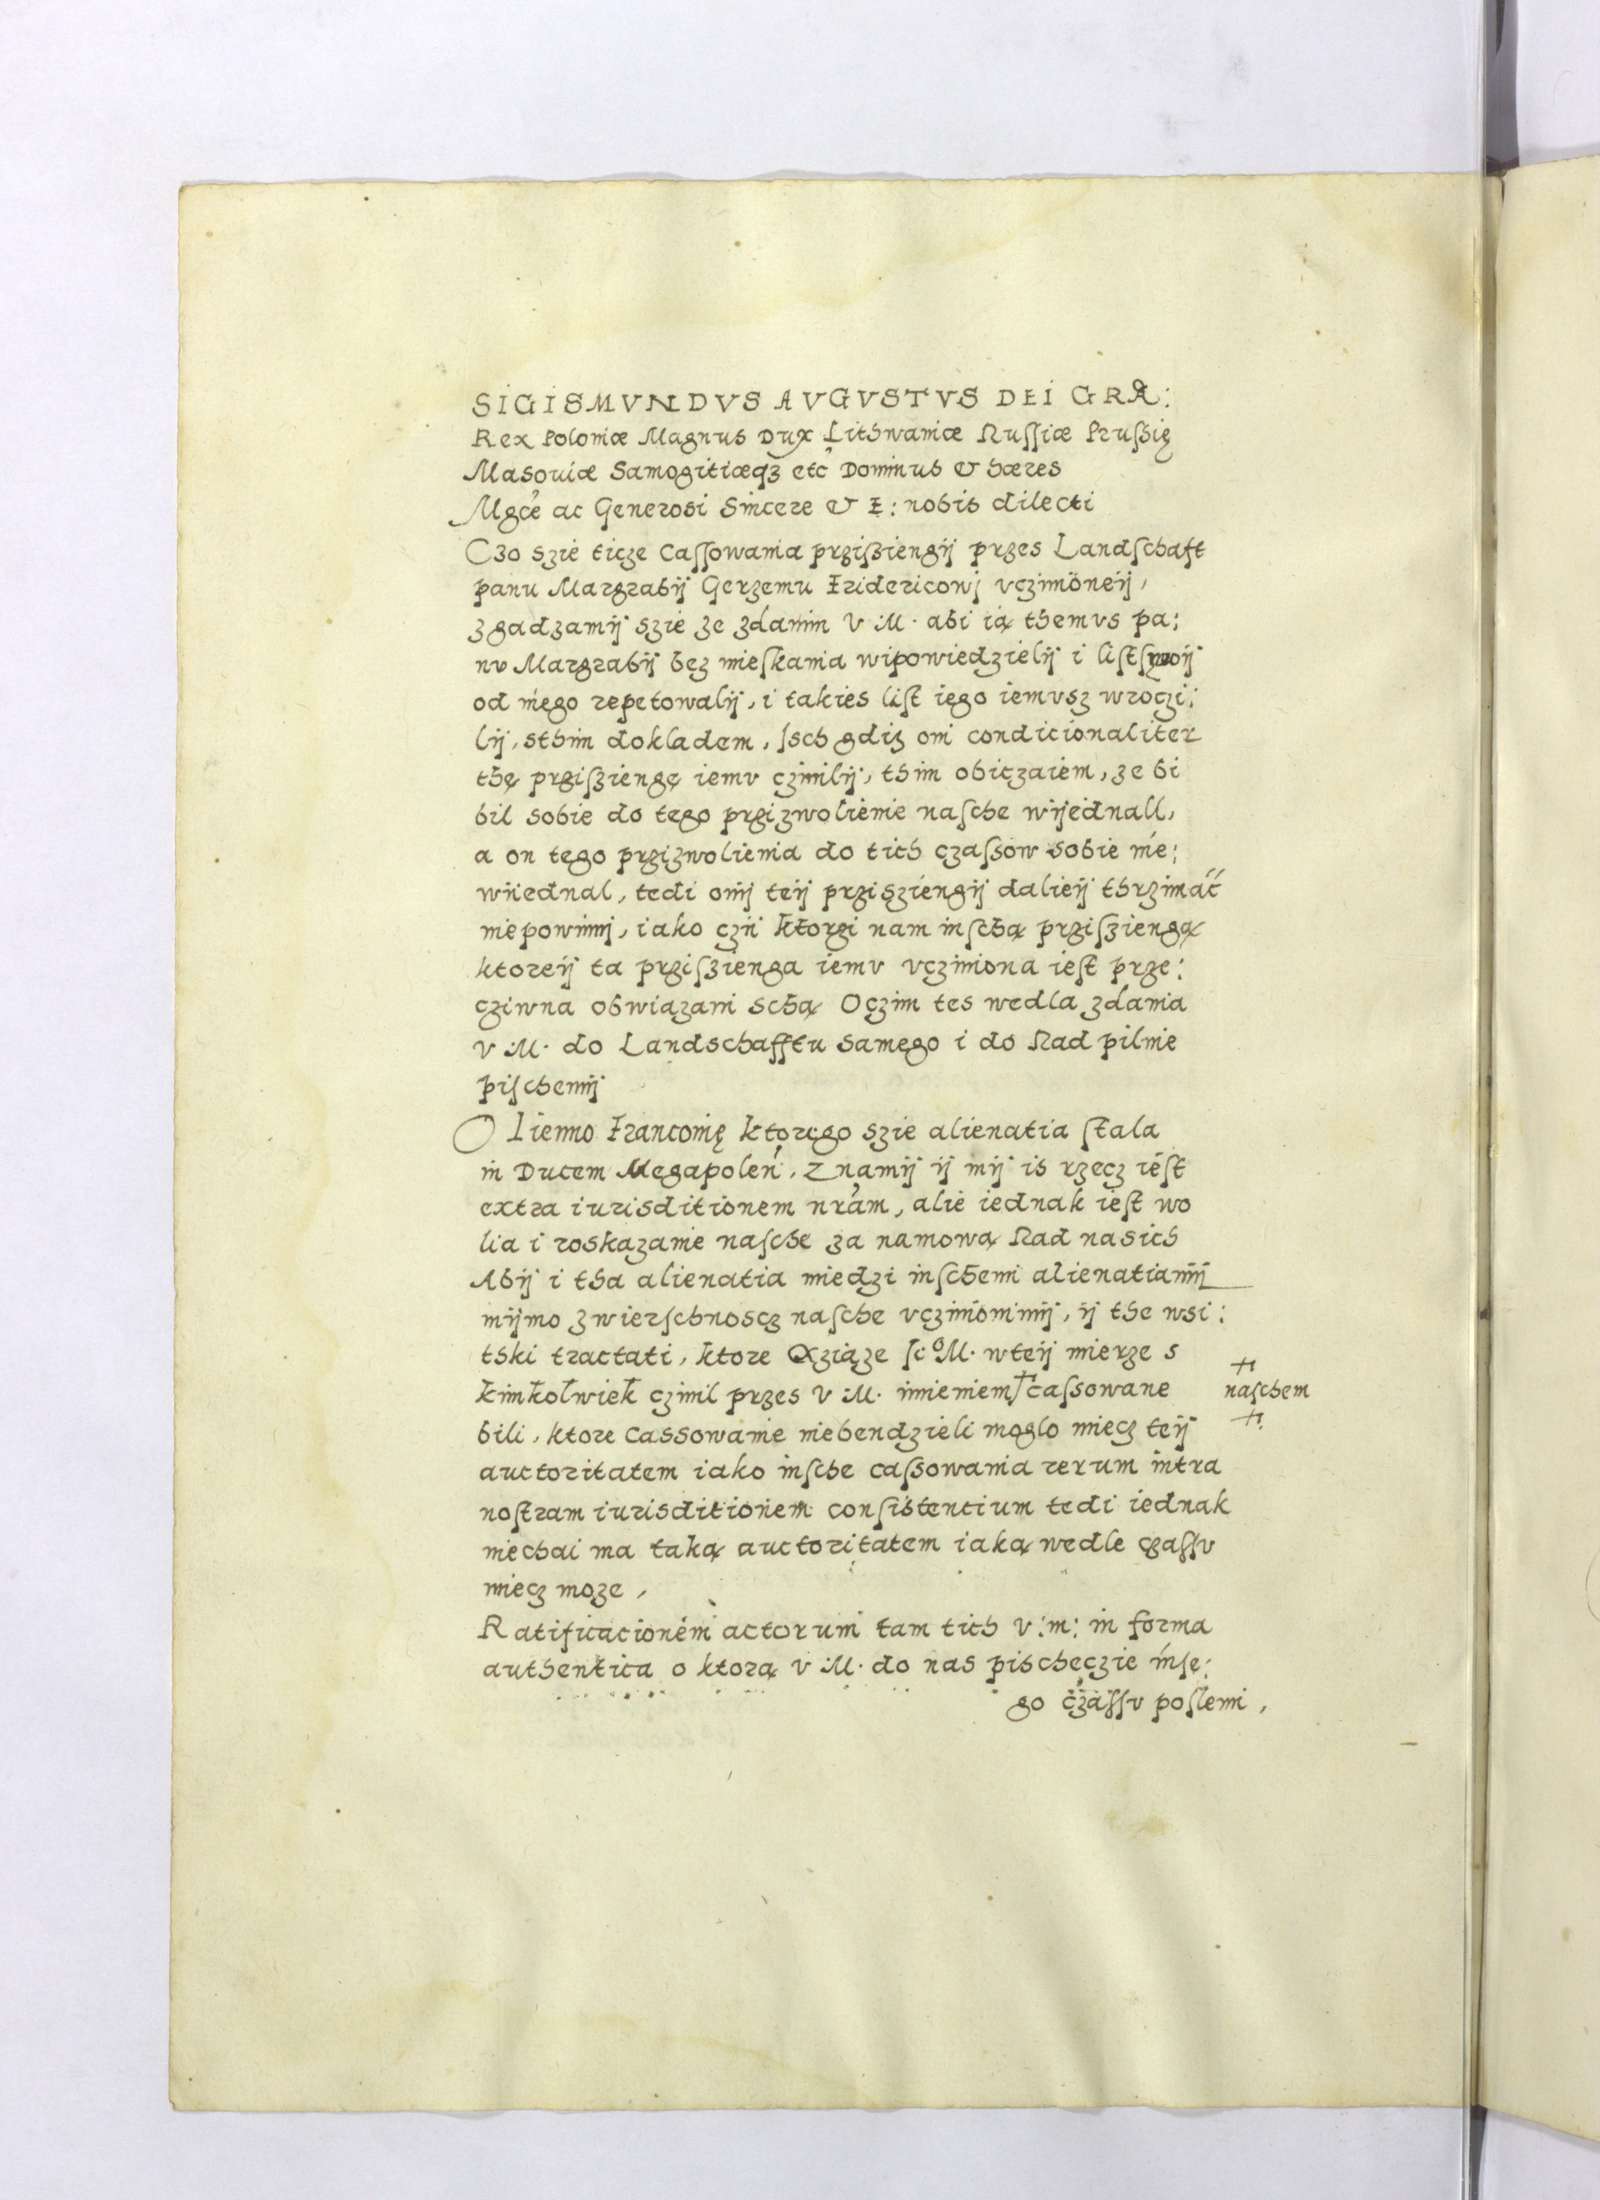 SIGISMVNDVS AVGVSTVS DEI GRA:
Rex Poloniæ Magnus Dux Lithwaniæ Russiæ Prussię
Masouiæ Samogitiæqʒ etc Dominus & hæres
Mgce ac Generosi Sincere & F: nobis dilecti
Czo szie ticze Cassowania przisziengij przes Landschaft
panu Margrabij Gerzemu Fridericowi vczinioneij,
zgadzamij szie ze zdanim V M. abi ią themus pa:
nv Margrabij bez mieskania wipowiedzielij i list swoij
od niego repetowalij, i takies list iego iemusz wroczi:
lij, sthim dokladem, isch gdiz oni condicionaliter
thę przisziengę iemv czinilij, thim obiczaiem, ze bi
bil sobie do tego przizwolienie nasche wijednall,
a on tego przizwolienia do tich czassow sobie nie:
wiiednal, tedi onij teij prziszięngij dalieij thrzimać
niepowinni, iako czii ktorzi nam inschą prziszięngą
ktoreij ta prziszienga iemv vcziniona iest prze:
cziwna obwiązani schą Oczim tes wedla zdania
V M. do Landschafftu samego i do Rad pilnie
pischemij
O Lienno Franconię ktorego szie alienatia stala
in Ducem Megapolen, Znamij ij mij is rzecz iest
extra iurisditionem nram, alie iednak iest wo
lia i roskazanie nasche za namową Rad nasich
Abij i tha alienatia miedzi inschemi alienatiamij
mijmo zwierschnoscz nasche vczinionimij, ij the wsi:
tski tractati, ktore Xziąze ic⁰M. wteij mierze s
kimkolwiek czinil przes V M. imieniem ┼ cassowane
┼ naschem ┼
bili, ktore Cassowanie niebendzieli moglo miecz teij
auctoritatem iako insche cassowania rerum intra
nostram iurisditionem consistencium tedi iednak
niechai ma taką auctoritatem iaką wedle czassv
miecz moze,
Ratificacionem actorum tam tich V:m: in forma
authentica o ktorą V M. do nas pischeczie inse:
go czassv poslemi,